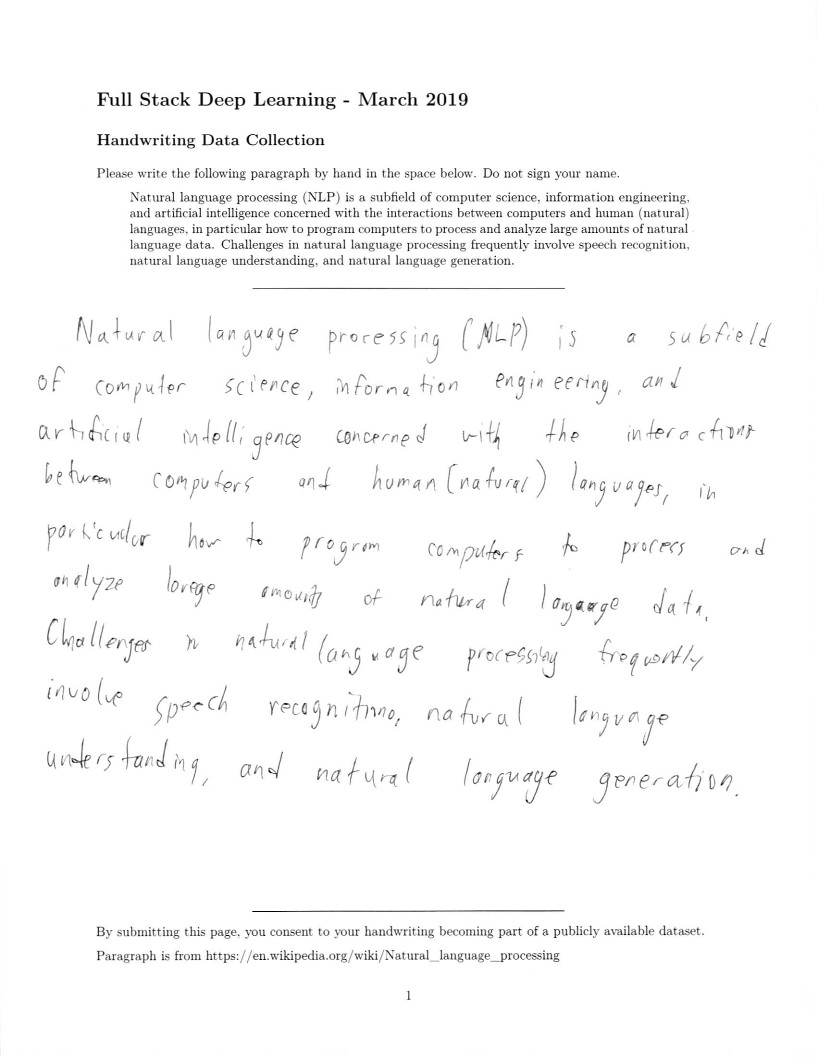 Full Stack Deep Learning - March 2019
Handwriting Data Collection
Please write the following paragraph by hand in the space below. Do not sign your name.
Natural language processing (NLP) is a subfield of computer science, information engineering,
and artificial intelligence concerned with the interactions between computers and human (natural)
languages, in particular how to program computers to process and analyze large amounts of natural
language data. Challenges in natural language processing frequently involve speech recognition,
natural language understanding, and natural language generation.
Natural language processing (NLP) is a subfield
of computer science, information engineering, and
artificial intelligence concerned with the interactions
between computers and human (natural) languages, in
particular how to program computers to process and
analyze lorege amounts of natural language data.
Challenges in natural language processing frequently
involve speech recognitino, natural language
understanding, and natural language generation.
By submitting this page, you consent to your handwriting becoming part of a publicly available dataset.
Paragraph is from https://en.wikipedia.org/wiki/Natural_language_processing
1